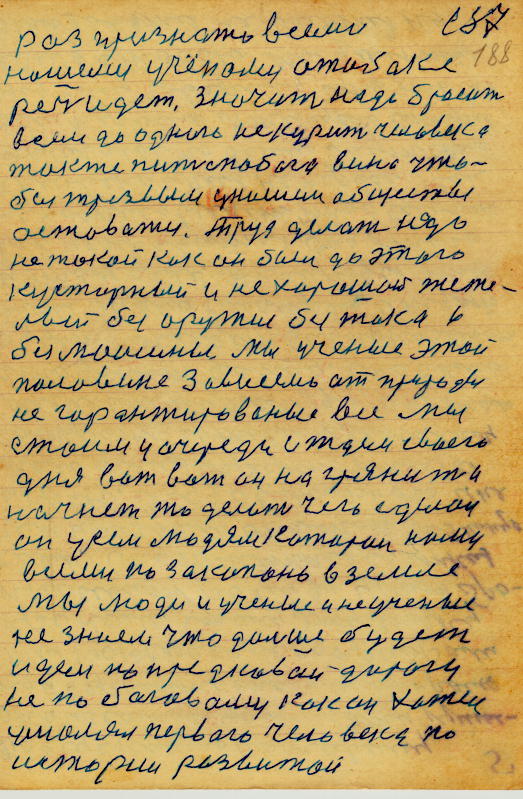 раз признать всеми 187
188
нашему учёному отабаке
реч идет. Значит надо бросит
всем до одного некурит человека
также питиспобога вино что-
быт трезвым унашим обществы
оставатц. Труд делат надо
не такой как он был до этого
кусторный и не хароший тяже-
лый без оружие без тока и
без машины мы ученые этой
половине зависемь от природы
не горантированые все мы
стоим у очереди и ждем своего
дня вот вот он нагрянит и
начнет то делат чего сделал
он усем людям которои нами
всеми по закопань в земле
мы люди и ученые и неученые
не знаем что дальше будет
идем по предковай дарогу
не по боговому как он хател
умолял первого человека по
истории развитой